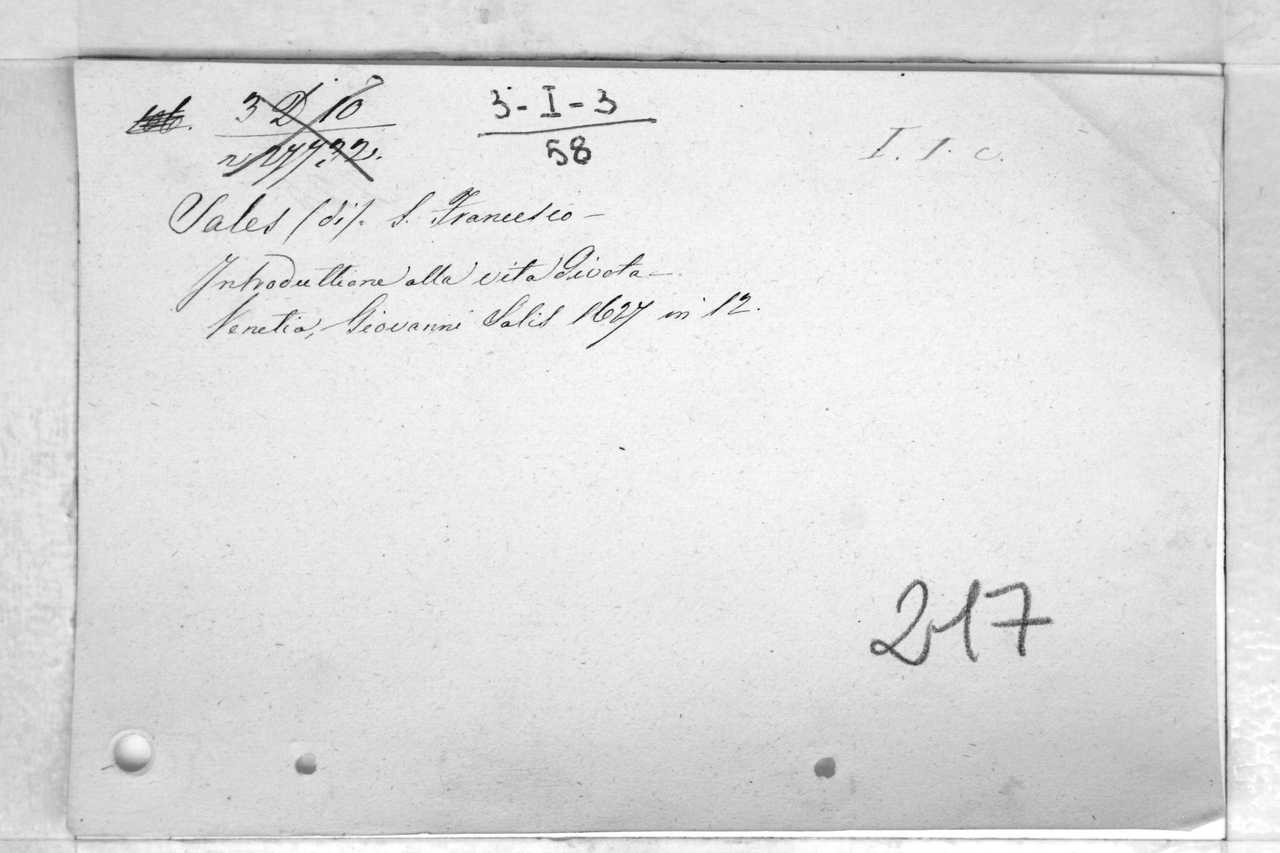 3 D 10
n 27732.
3-I-3
58
I. 1. c.
Sales (di). S. Francesco –
Introduttione alla vita divota –
Venetia, Giovanni Salis 1627 in 12.
217